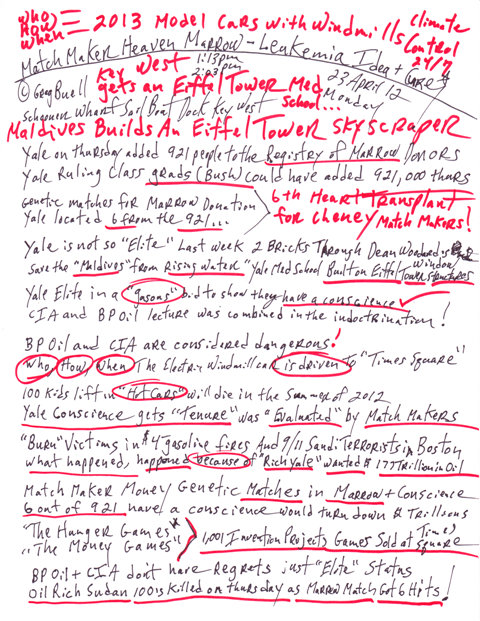 Who
How
When = 2013 Model Cars with Windmills Climate
Control
24/7
Match Maker Heaven Marrow - Leukemia Idea +
Key West 1:13pm
2:23pm
© Greg Buell gets an Eiffel Tower Med 23 April 12
School... Monday
Schooner Wharf Sail Boat Dock Key West
Maldives Builds An Eiffel Tower Skyscraper
Yale on thursday added 921 people to the Registry of Marrow Donors
Yale Ruling Class grads (Bush) could have added 921,000 thurs
Genetic matches for Marrow Donation
Yale located 6 from the 921...
6th Heart Transplant
for Cheney Match Makers!
Yale is not so "Elite" Last week 2 Bricks Through Dean Window
Save the "Maldives" from Rising Water" Yale Med School Built on Eiffel Tower structures
Yale Elite in a "gasous" bid to show they have a conscience
CIA and BP Oil lecture was combined in the indoctrination!
BP Oil and CIA are considered dangerous!
Who, How, When The Electric Windmill car is driven to "Times Square"
100 Kids lift in "Hot Cars" will die in the Summer of 2012
Yale Conscience gets "Tenure" was "Evaluated" by Match Makers
"Burn" Victims in $4 gasoline fires And 9/11 Saudi Terrorists in Boston
what happened, happened because of "Rich Yale" Wanted $177 Trillion in Oil
Match Maker Money Genetic Matches in Marrow + Conscience
6 out of 921 have a conscience would turn down $ Trillions
"The Hunger Games"
"The Money Games"
1,001 Invention Projects Games Sold at Times
Square
BP Oil + CIA don't have Regrets just "Elite" Status
Oil Rich Sudan 100's Killed on thursday as Marrow Match Got 6 Hits!